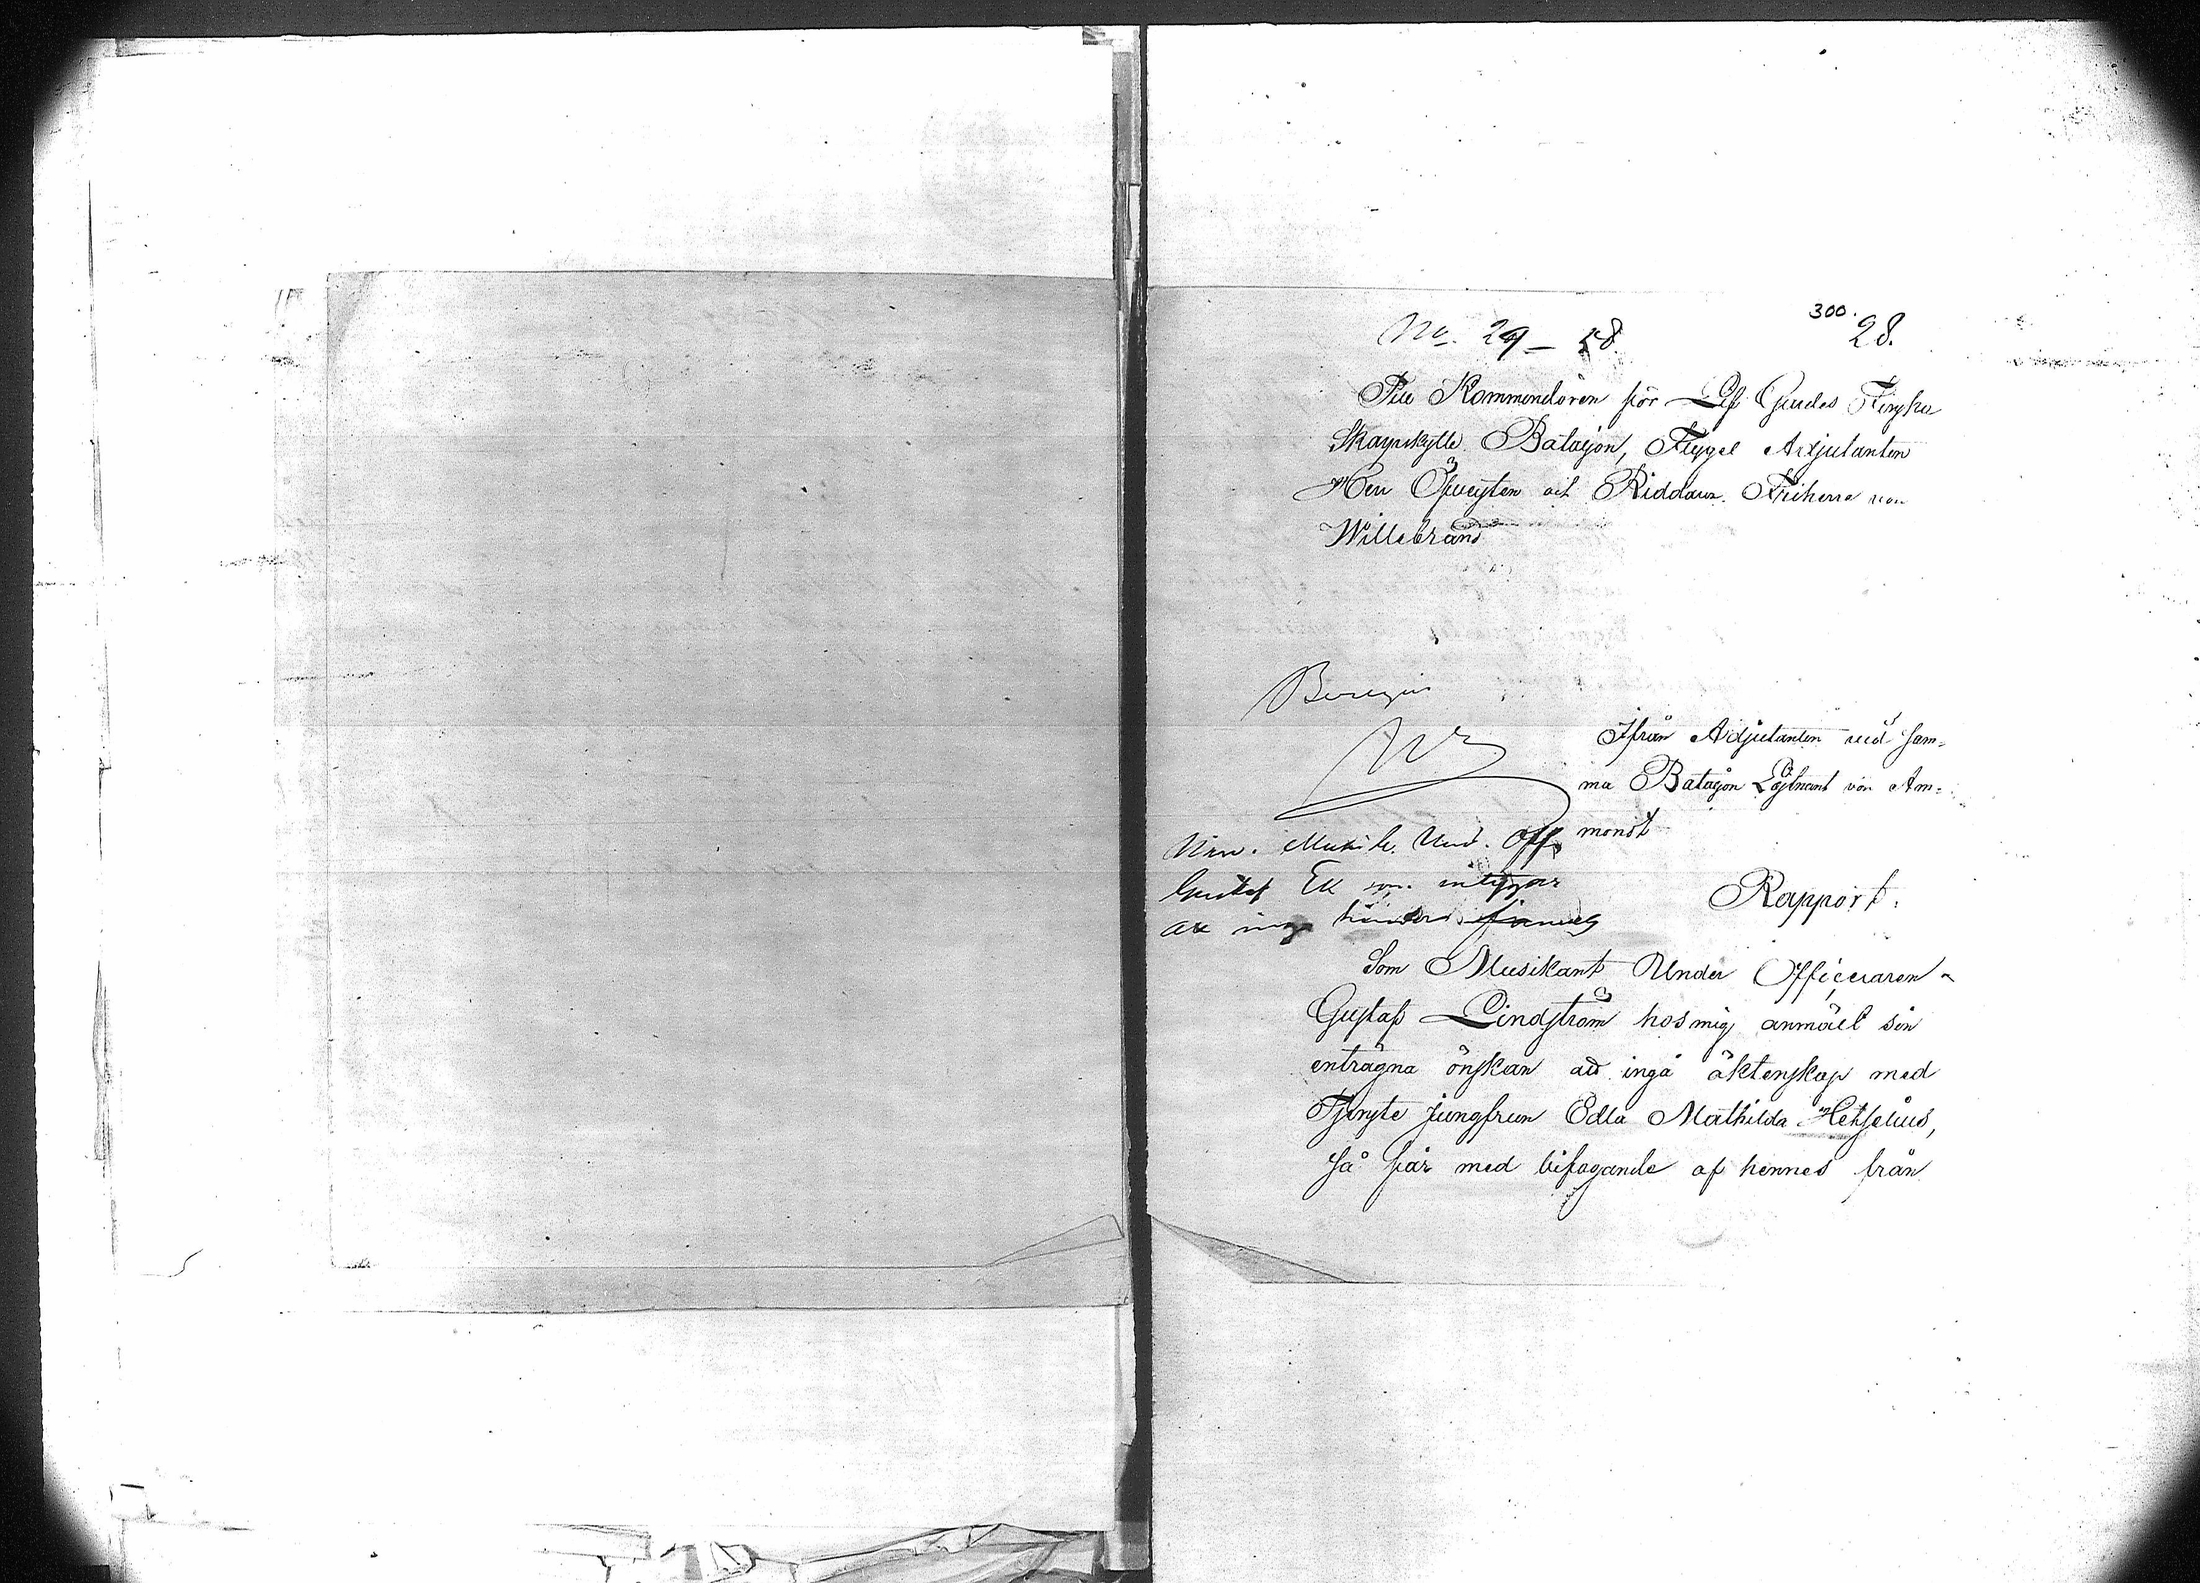 300.
No. 29 – 28
28.
Till Kommendören för Lif Gardes Finska
Skarpskytte Bataljon, Flygel Adjutanten
Herr Öfversten och Riddaren Friherre von
Willebrand
Ifrån Adjutanten vid sam=
ma Bataljon Löjtnant von Am=
mondt
Musik. Und. Off.
Gustaf Ek som intygar
att inga hinder finnes
Rapport.
Som Musikant Under Officeraren
Gustaf Lindström hos mig anmält sin
enträgna önskan att ingå äktenskap med
Tjenste jungfrun Edla Mathilda Hetselius,
så får med bifogande af hennes från